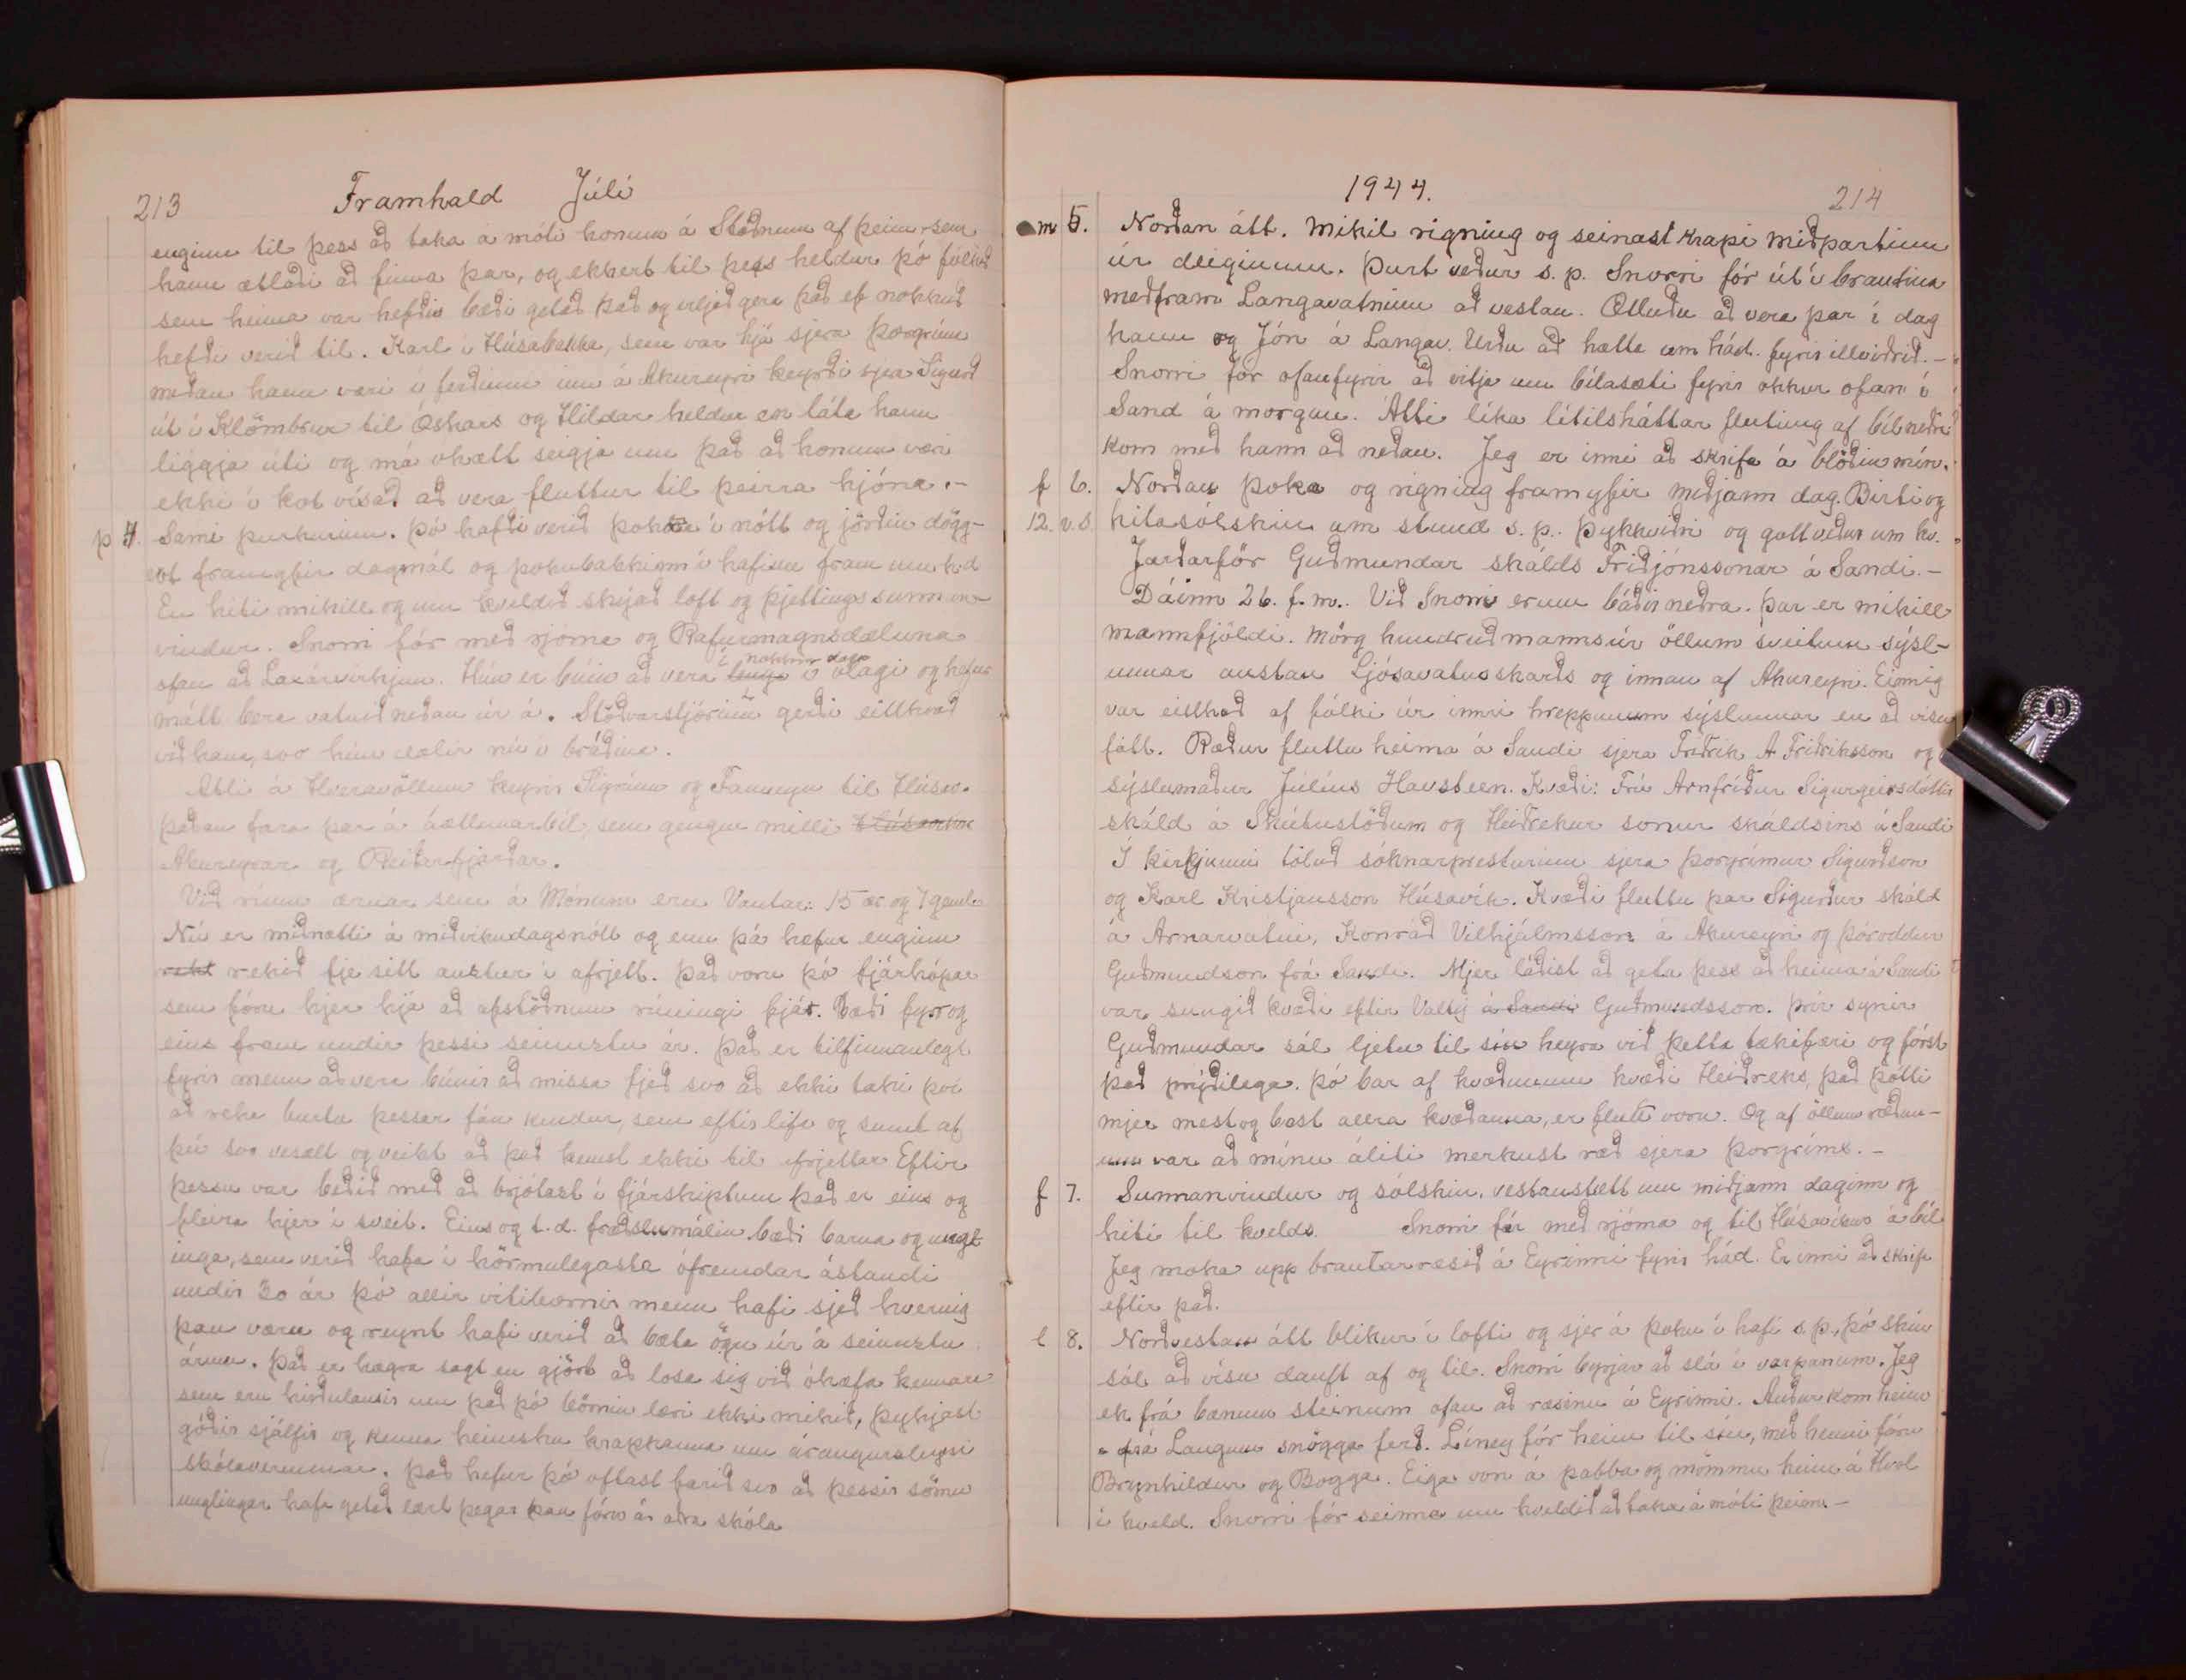 213 Framhald Júlí
enginn til þess að taka á móti honum á Staðnum af þeim sem
hann ætlaði að finna þar, og ekkert til þess heldur þó fólkið
sem heima var hefði bæði getað það og viljað gera það ef nokkuð
hefði verið til. Karl í Húsabakka, sem var hjá sjera Þorgrími
meðan hann væri í ferðinni inn á Akureyri keyrði sjera Sigurð
út í Klömbrur til Óskars og Hildar heldur en láta hann
liggja úti og má óhætt seigja um það að honum væri
ekki í kot vísað að vera fluttur til þeirra hjóna.-
þ 4. Sami þurkurinn. Þó hafði verið þoka í nótt og jörðin dögg-
vot framyfir dagmál og þokubakkinn í hafinu fram um hád
En hiti mikill og um kveldið skýjað loft og þjettings sunnan-
vindur. Snorri fór með rjóma og Rafurmagnsdæluna
ofan að Laxárvirkjun. Hún er búin að vera í nokkra daga í ólagi og hefur
mátt bera vatnið neðan úr á. Stöðvarstjórinn gerði eitthvað
við hana, svo hún dælir nú í bráðina.
Atli á Hveravöllum keyrir Sigrúnu og Fanneyu til Húsav.
þaðan fara þær á áætlunarbíl, sem gengur milli Húsavíkur
Akureyrar og Reiðarfjarðar.
Við rúum ærnar sem á Mónum eru Vantar: 15 ær og 7 gamla
Nú er miðnætti á miðvikudagsnótt og enn þá hefur enginn
rekið fje sitt austur í afrjett. Það voru þó fjárhópar
sem fóru hjer hjá að afstöðnum rúningi fjár. Bæði fyr og
eins fram undir þessi seinustu ár. Það er tilfinnanlegt
fyrir menn að vera búnir að missa fjeð svo að ekki taki því
að reka burtu þessar fáu kindur, sem eftir lifa og sumt af
því svo vesælt og veikt að það kemst ekki til afrjettar Eftir
þessu var beðið með að brjótast í fjárskiptum það er eins og
fleira hjer í sveit. Eins og t.d. fræðslumálin bæði barna og ungl
inga, sem verið hafa í hörmulegasta ófremdar ástandi
undir 20 ár þó allir vitibornir menn hafi sjeð hvernig
þau væru og reynt hafi verið að bæta ögn úr á seinustu
árum. Það er hægra sagt en gjört að losa sig við óhæfa kennara
sem eru hirðulausir um það þó börnin læri ekki mikið, þykjast
góðir sjálfir og kenna heimsku krakkanna um árangursleysi
skólaverunnar. Það hefur þó oftast farið svo að þessir sömu
unglingar hafa getað lært þegar þau fóru í aðra skóla
1944. 214
m 5. Norðan átt. Mikil rigning og seinast krapi miðpartinn
úr deiginum. Þurt veður s. p. Snorri fór út í brautina
meðfram Langavatninu að vestan. Ætluðu að vera þar í dag
hann og Jón á Langav. Urðu að hætta um hád. fyrir illviðrið.-
Snorri fór ofanfyrir að vitja um bílasæti fyrir okkur ofan í
Sand á morgun. Atti líka lítilsháttar flutning af bíl neðra
kom með hann að neðan. Jeg er inni að skrifa á blöðin mín.
f 6. Norðan þoka og rigning framyfir miðjann dag. Birti og
12. v.s. hitasólskin um stund s. p. Þykkviðri og gott veður um kv.
Jarðarför Guðmundar skálds Friðjónssonar á Sandi.-
Dáinn 26. f. m. Við Snorri erum báðir neðra. Þar er mikill
mannfjöldi. Mörg hundruð manns úr öllum sveitum sýsl-
unnar austan Ljósavatnsskarðs og innan af Akureyri. Einnig
var eitthvað af fólki úr innri hreppunum sýslunnar en að vísu
fátt. Ræður fluttu heima á Sandi sjera Friðrik A Friðriksson og
sýslumaður Júlíus Havsteen. Kvæði: Frú Arnfríður Sigurgeirsdóttir
skáld á Skútustöðum og Heiðrekur sonur skáldsins á Sandi
I kirkjunni töluð sóknarpresturinn sjera Þorgrímur Sigurðson
og Karl Kristjansson Húsavík. Kvæði fluttu þar Sigurður skáld
á Arnarvatni, Konráð Vilhjálmsson á Akureyri og Þóroddur
Guðmundson frá Sandi. Mjer láðist að geta þess að heima á Sandi
var sungið kvæði eftir Valtý á Sandi Guðmundsson. Þrír synir
Guðmundar sál ljetu til sín heyra við þetta tækifæri og fórst
það prýðilega. Þó bar af kvæðunum kvæði Heiðreks, það þótti
mjer mest og best allra kvæðanna, er flutt voru. Og af öllum ræðun-
um var að mínu áliti merkust ræð sjera Þorgríms.-
f 7. Sunnanvindur og sólskin, vestanstætt um miðjann daginn og
hiti til kvelds. Snorri fór með rjóma og til Húsavíkur á bíl
Jeg moka upp brautarræsið á Eyrinni fyrir hád. Er inni að skrifa
eftir það.
l 8. Norðvestan átt blikur í lofti og sjer á þoku í hafi s. p, þó skín
sól að vísu dauft af og til. Snorri byrjar að slá í varpanum. Jeg
ek frá bænum steinum ofan að ræsinu á Eyrinni. Auður kom heim
frá Laugum snögga ferð. Líney fór heim til sín, með henni fóru
Brynhildur og Bogga. Eiga von á pabba og mömmu heim á Hvol
í kveld. Snorri fór seinna um kveldið að taka á móti þeim.-